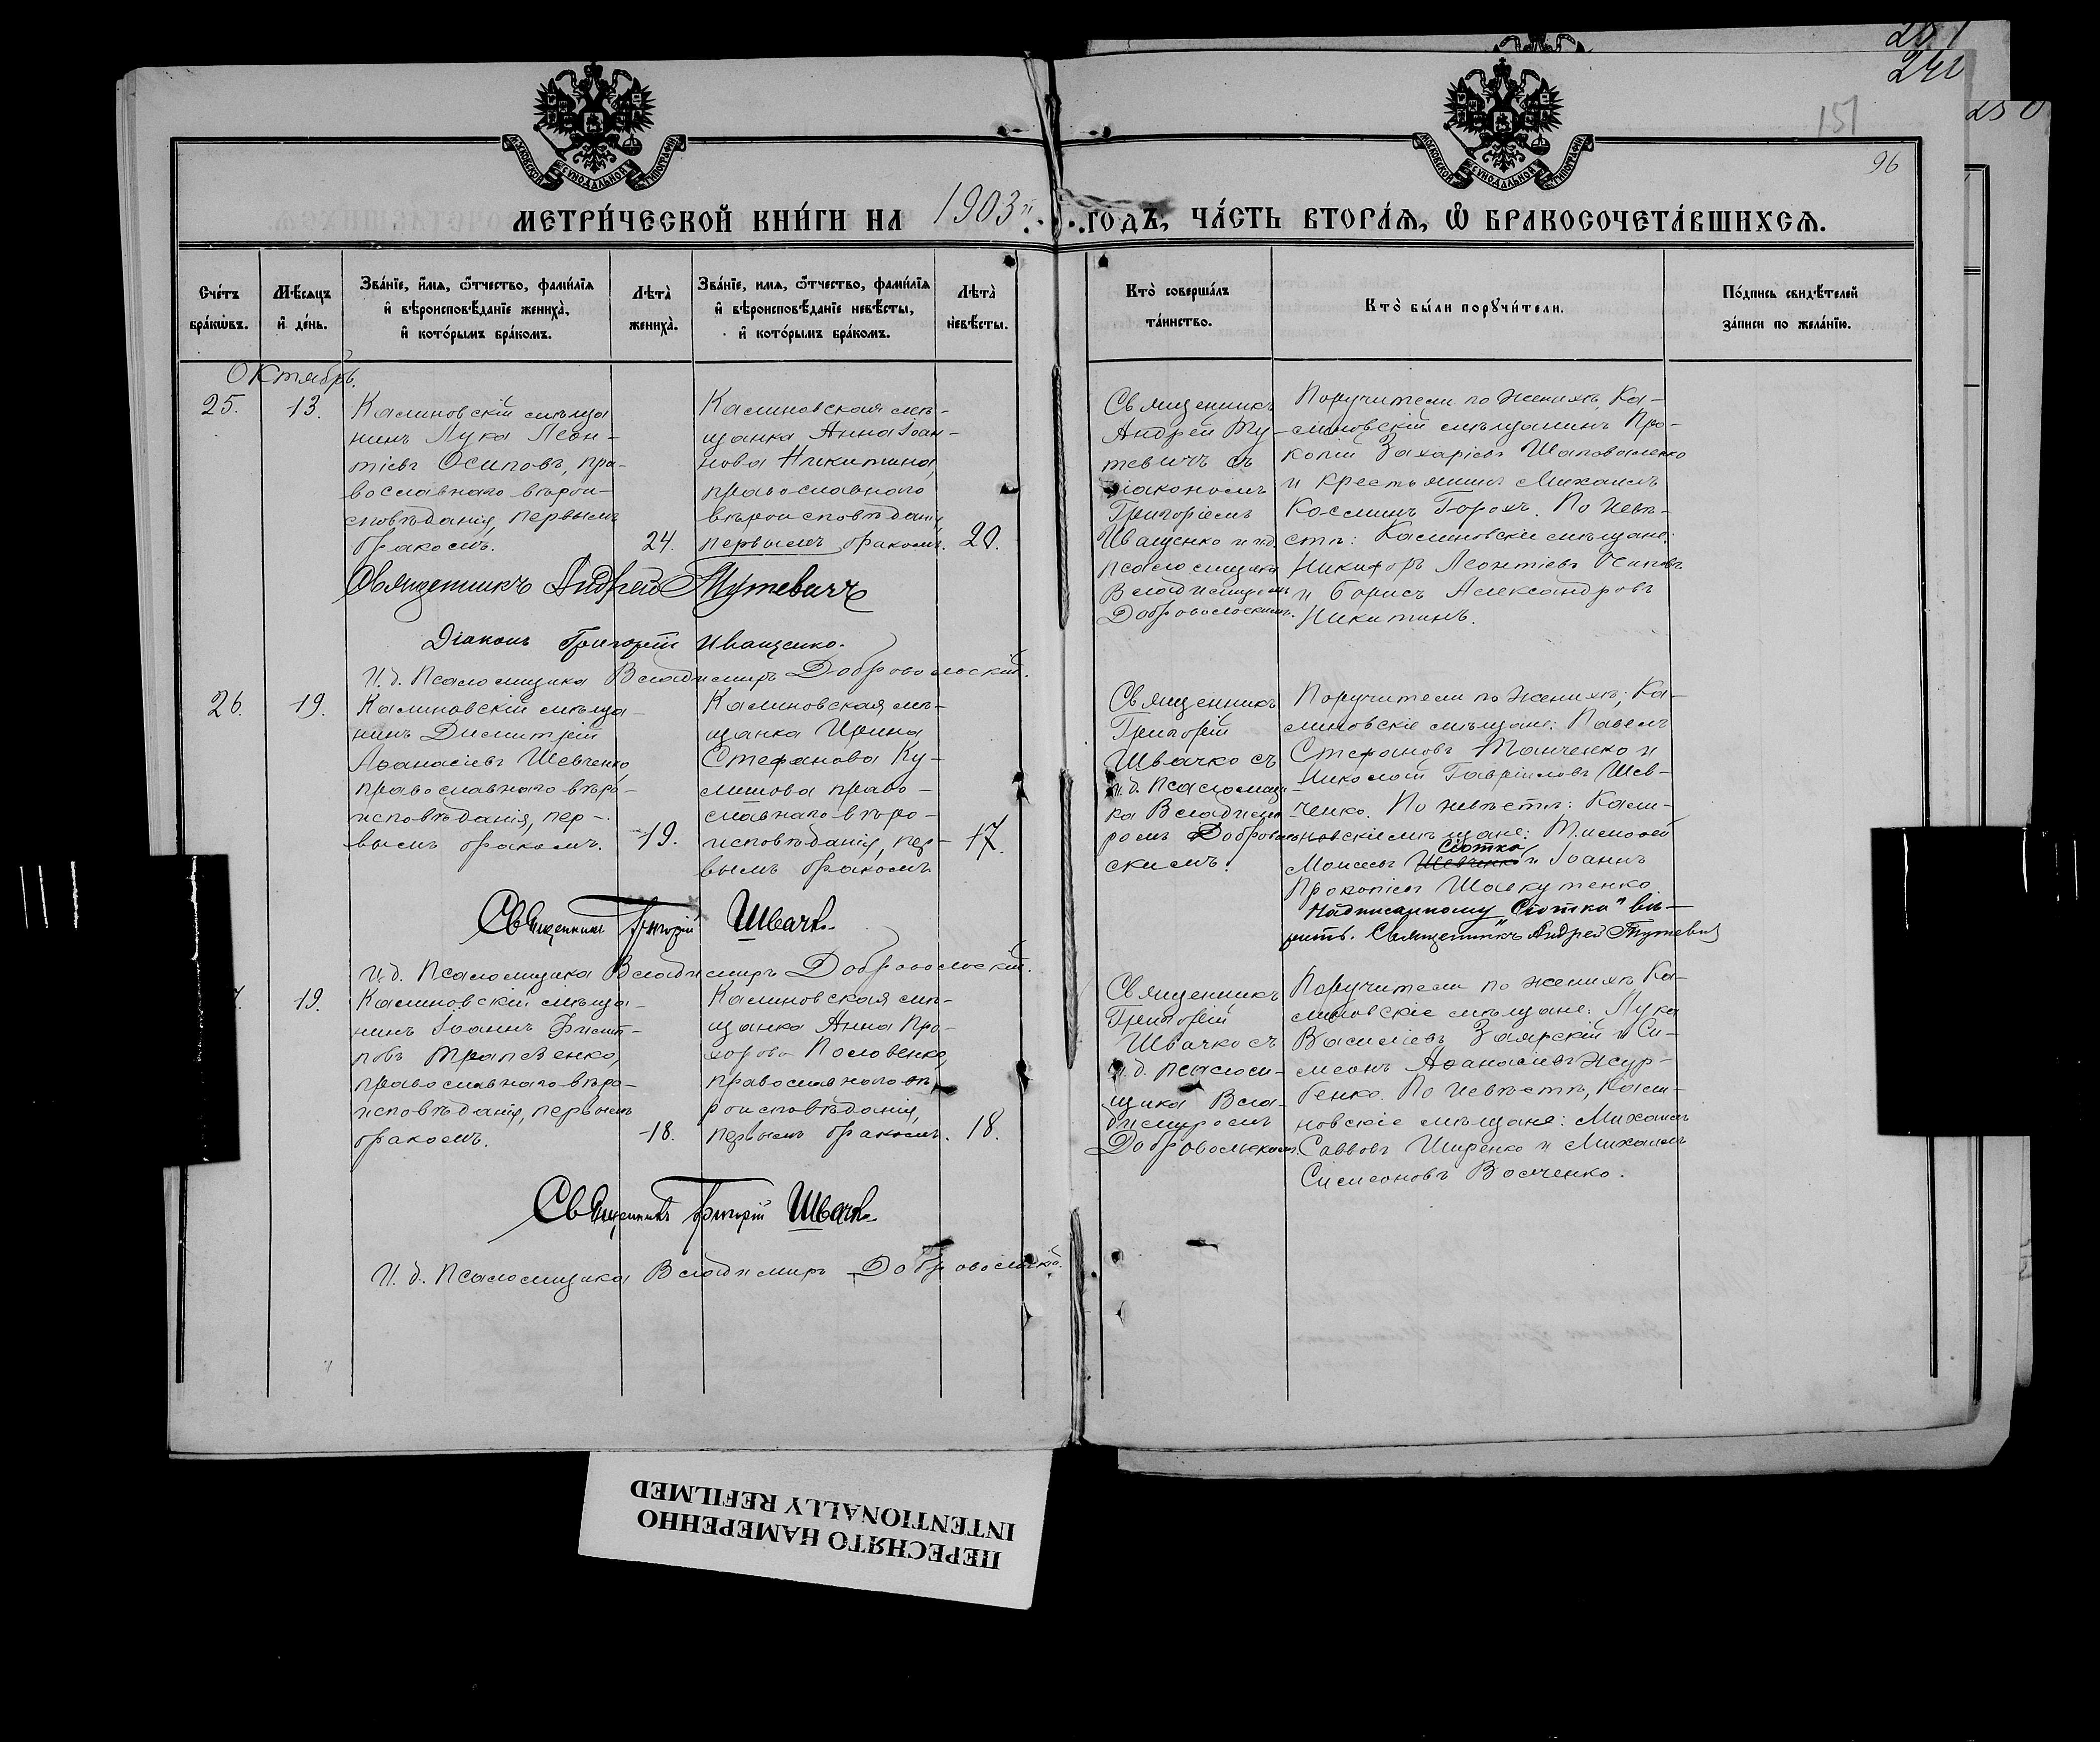 251
242
250
151
96
МОСКОВСКОЙ СѴНОДАЛЬНОЙ ТИПОГРАФІИ
МОСКОВСКОЙ СѴНОДАЛЬНОЙ ТИПОГРАФІИ
МЕТРИ́ЧЕСКОЙ КНИ́ГИ НА 1903й ГОДЪ, ЧА́СТЬ ВТОРА́Я, Ѡ БРАКОСОЧЕТА́ВШИХСЯ.
Сче́тъ
бра́кѡвъ.
Мѣ́сяцъ
и де́нь.
Зва́нїе, и́мя, ѻ́тчество, фами́лїя
и вѣроисповѣ́данїе жениха̀,
и кото́рымъ бра́комъ.
Лѣта̀
жениха̀.
Зва́нїе, имя, ѻ́тчество, фами́лїя
и вѣроисповѣ́данїе невѣ́сты,
и кото́рымъ бра́комъ.
Лѣта̀
невѣ́сты.
Кто̀ соверша́лъ
та́инство.
Кто̀ бы́ли порꙋчи́тели.
По́дпись свидѣ́телей
за́писи по жела́нїю.
Октябрь.
25.
13.
Калиновскій мѣща
нинъ Лука Леон-
тіевъ Осиповъ, пра-
вославнаго вѣрои-
сповѣданія, первымъ
бракомъ.
24.
Калиновская мѣ-
щанка Анна Іоан-
нова Никитина,
православнаго
вѣроисповѣданія,
первымъ бракомъ.
20.
Священникъ
Андрей Ту-
тевичъ съ
діакономъ
Григоріемъ
Иващенко и и.д.
псаломщика
Владиміромъ
Добровольскимъ.
Поручители по женихѣ, Ка-
линовскій мѣщанинъ Про-
копій Захаріевъ Шаповаленко
и крестьянинъ Михаилъ
Косминъ Горохъ. По невѣ-
стѣ: Калиновскіе мѣщане:
Никифоръ Леонтіевъ Осиповъ
и Борисъ Александровъ
Никитинъ.
Священникъ Андрей Тутевичъ
Діаконъ Григорій Иващенко.
И. д. Псаломщика Владиміръ Добровольскій.
26.
19.
Калиновскій мѣща-
нинъ Димитрій
Аѳанасіевъ Шевченко
православнаго вѣро-
исповѣданія, пер-
вымъ бракомъ.
19.
Калиновская мѣ-
щанка Ирина
Стефанова Ку-
лешова право-
славнаго вѣро-
исповѣданія, пер-
вымъ бракомъ
17.
Священникъ
Григорій
Швачко съ
и.д. псаломщи-
ка Владимі-
ромъ Доброволь-
скимъ.
Поручители по женихѣ; Ка-
линовскіе мѣщане: Павелъ
Стефановъ Танченко и
Николай Гавріиловъ Шев-
ченко. По невѣстѣ: Кали-
новскіе мѣщане: Тимоѳей
Сіотка
Моисеевъ Шевченко и Іоаннъ
Прокопіевъ Шавкутенко.
Надписанному „Сіотка" вѣ-
рить. Священникъ Андрей Тутевичъ
Священникъ Григорій Швачко
И. д. Псаломщика Владиміръ Добровольскій.
19.
Калиновскій мѣща-
нинъ Іоаннъ Филип-
повъ Трапезенко,
православнаго вѣро-
исповѣданія, первымъ
бракомъ.
18.
Калиновская мѣ-
щанка Анна Про-
хорова Половенко,
православнаго вѣ-
роисповѣданія,
первымъ бракомъ.
18.
Священникъ
Григорій
Швачко съ
и.д. псалом-
щика Вла-
диміромъ
Добровольскимъ.
Поручители по женихѣ Ка-
линовскіе мѣщане: Лука
Василіевъ Заярскій и Си-
меонъ Аѳанасіевъ Жур-
бенко. По невѣстѣ, Кали-
новскіе мѣщане: Михаилъ
Саввовъ Ширенко и Михаилъ
Симеоновъ Волченко.
Священникъ Григорій Швачко
И. д. Псаломщика Владиміръ Добровольскій.
ПЕРЕСНЯТО НАМЕРЕННО
INTENTIONALLY REFILMED